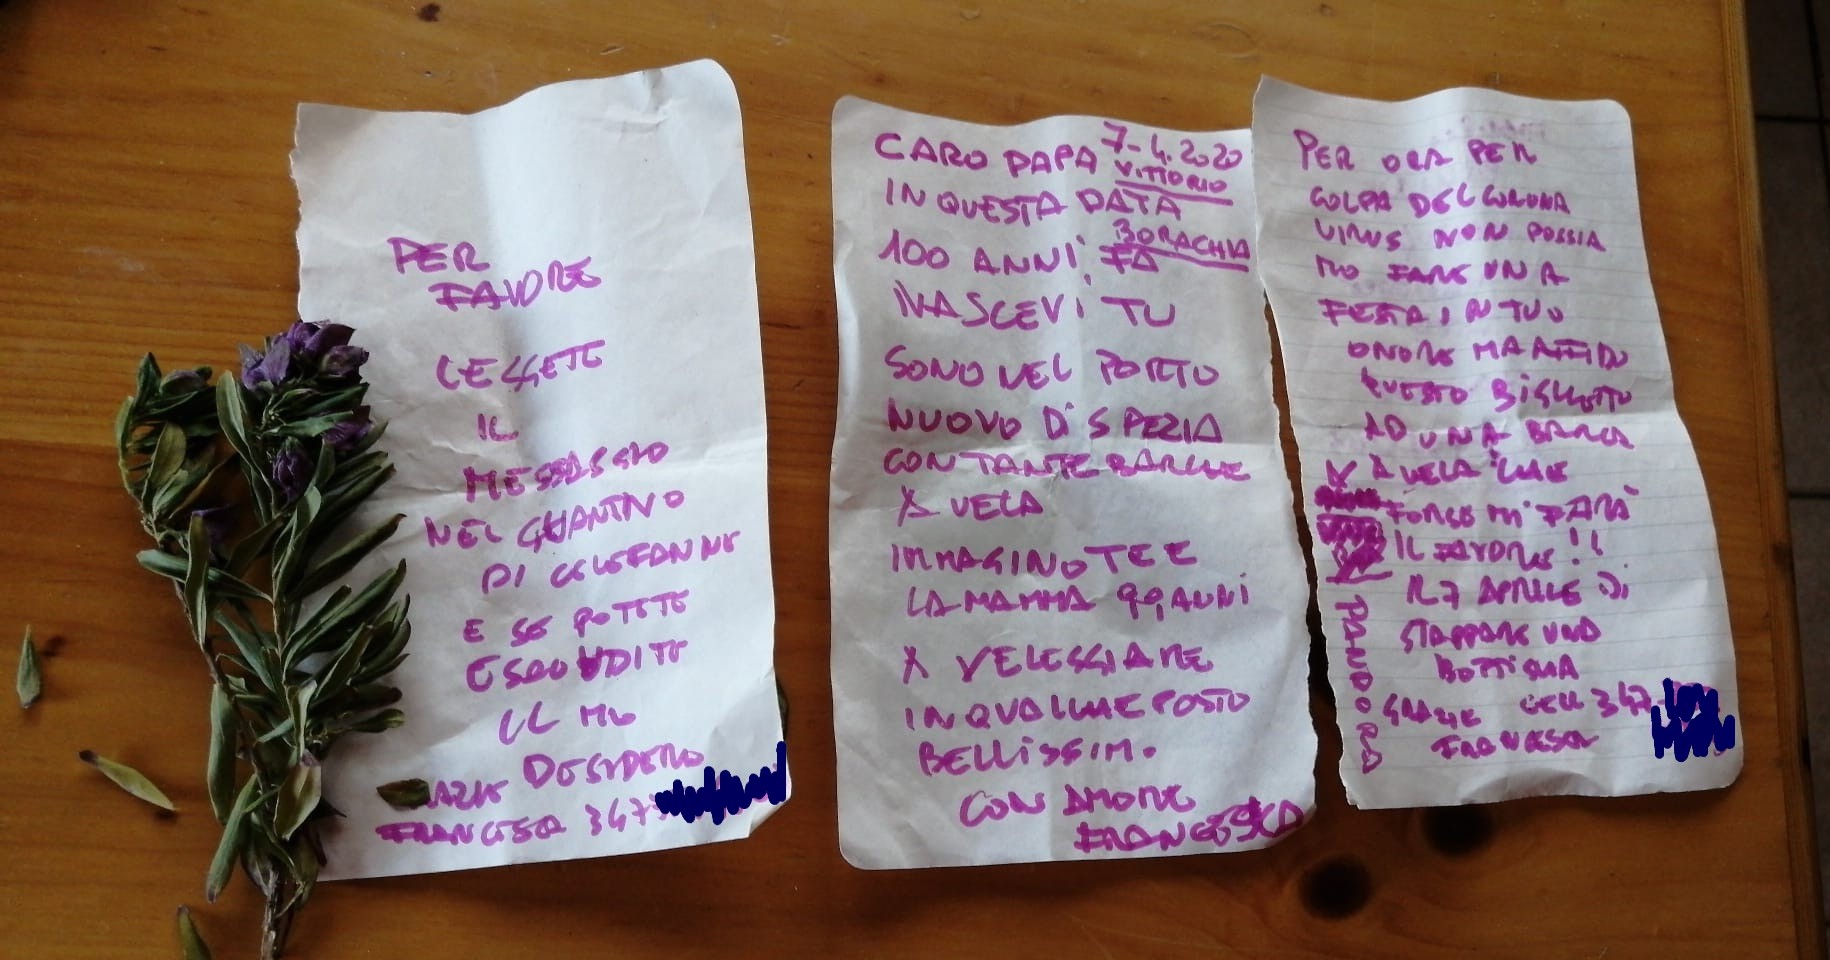 PER
FAVORE
LEGGETE
IL
MESSAGGIO
NEL GUANTINO
DI CELOFANNE
E SE POTETE
ESAUDITE
IL MIO
DESIDERIO
AZIE
FRANCESCA 347
CARO PAPA 7-4.2020
VITTORIO
IN QUESTA DATA
BORACHIA
100 ANNI FA
NASCEVI TU
SONO NEL PORTO
NUOVO DI SPEZIA
CON TANTE BARCHE
A VELA
IMMAGINO TE E
LA MAMMA 99, ANNI
A VELEGGIARE
IN QUALCHE POSTO
BELLISSIMO
CON AMORE
FRANCESCA
PER ORA PER
COLPA DEL CORONA
VIRUS NON POSSIA
MO FARE UNA
FESTA IN TUO
ONORE MA AFFIDO
QUESTO BIGLIETTO
AD UNA BARCA
A VELA CHE
FORSE MI FARÀ
IL FAVORE!!
IL 7 APRILE DI
STAPPARE UNA
BOTTIGLIA
GRAZIE CELL 347
FRANCESCA
PANDORA